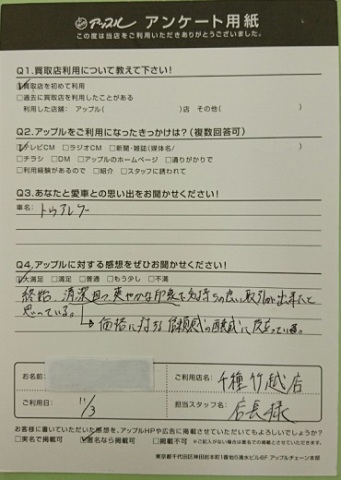 アップル アンケート用紙
この度は当店をご利用いただきありがとうございました。
Q1.買取店利用について教えて下さい!
☑買取店を初めて利用
□過去に買取店を利用したことがある
利用した店舗: アップル( )店 その他( )
Q2.アップルをご利用になったきっかけは?(複数回答可)
☑テレビCM □ラジオCM □新聞・雑誌(媒体名/ )
□チラシ □DM □アップルのホームページ □通りがかりで
□利用経験があるので □紹介 □スタッフに誘われて
Q3.あなたと愛車との思い出をお聞かせください!
車名: トゥアレグ
Q4.アップルに対する感想をぜひお聞かせください!
☑大満足 □満足 □普通 □もう少し □不満
終始、清潔且つ爽やかな印象で気持ちの良い取引が出来たと
思っている。
→価格に対する信頼感の醸成に反っている。
お名前:
ご利用店名: 千種竹越店
ご利用日: 11/3
担当スタッフ名: 店長様
お客様に書いていただいた感想を、アップルHPや広告に掲載させていただいてもよろしいでしょうか?
□実名で掲載可 ☑匿名なら掲載可 □掲載不可 ※ご記入がない場合は匿名での掲載とさせていただきます。
東京都千代田区神田錦本町1番地6清水ビル6F アップルチェーン本部